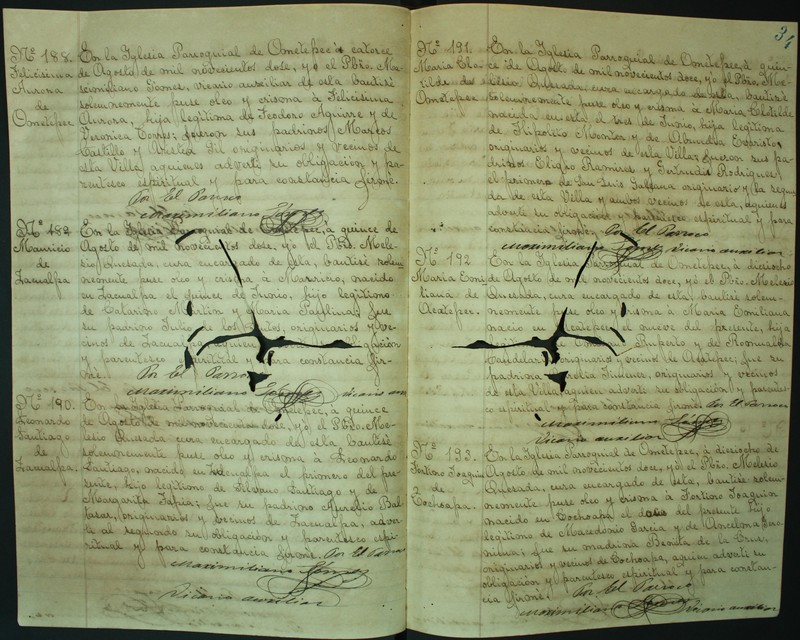 Nº 188.
Felicisima
Aurora
de
Ometepec
En la Iglesia Parroquial de Ometepec á catorce
de Agosto de mil novecientos dose, yo el Pbro. Ma-
ximiliano Gomes, vicario auxiliar de esta bautisé
solemnemente puse oleo y crisma á Felicisima
Aurora, hija legítima de Teodoro Aguirre y de
Veronica Torres; fueron sus padrinos Marcos
Castillo y Gil originarios y vecinos de
esta Villa aquienes advertí su obligacion y pa-
rentesco espiritual y para constancia firmé.
Por El Parroco
Maximiliano Gómes
Nº 189
Mauricio
de
Zacualpa
En la Iglesia Parroquial de Ometepec, á quince de
Agosto de mil novecientos dose, yo el Pbro. Mele-
sio Quesada, cura encargado de esta, bautisé solem-
nemente puse oleo y crisma á Mauricio, nacido
en Zacualpa el quince de Junio, hijo legítimo
de Catarino Martin y Maria; fue
su padrino Julio de los Santos, originarios y ve-
cinos de Zacualpa, aquien obligacion
y parentesco espiritual y para constancia fir-
mé.
Por El Parroco
Maximiliano Gómes
Vicario aux
Nº 190.
Leonardo
Santiago
de
Zacualpa.
En la Iglesia Parroquial de Ometepec, á quince
de Agosto de mil novecientos doce, yo, el Pbro. Me-
lesio Quesada cura encargado de esta bautisé
solemnemente puse oleo y crisma á Leonardo
Santiago, nacido en Zacualpa el primero del pre-
sente, hijo legítimo de Silvano Santiago y de
Margarita Tapia; fue su padrino Aurelio Bal-
tasar, originarios y vecinos de Zacualpa, adver-
ti al segundo su obligacion y parentesco espi-
ritual y para constancia firmé. Por El Parroco
Maximiliano Gómes
Vicario auxiliar
34
Nº 191.
Maria Clo-
tilde de
Ometepec
En la Iglesia Parroquial de Ometepec, á quin-
ce de Agosto de mil novecientos doce, yo el Pbro. Me-
lesio Quesada, cura encargado de esta, bautisé
solemnemente puse oleo y crisma á Maria Clotilde
nacida en esta el tres de Junio, hija legítima
de Hipolito Montes y de Abundia Evaristo,
originarios y vecinos de esta Villa; fueron sus pa-
drinos Eligio Ramires y Gertrudis Rodrigues,
el primero de San Luis originario y la segun-
da de esta Villa y ambos vecinos de esta, aquienes
advertí su obligacion y parentesco espiritual y para
constancia firmé. Por El Parroco
Maximiliano Gomes Vicario auxiliar
Nº 192
Maria Emi-
liana de
Acatepec.
En la Iglesia Parroquial de Ometepec, á dieciocho
de Agosto de mil novecientos doce, yo el Pbro. Melesio
Quesada, cura encargado de esta, bautisé solem-
nemente puse oleo y crisma á Maria Emiliana
nacio en Acatepec el nueve del presente, hija
Ruperto y de Romualda
originarios y vecinos de Acatepec; fue su
padrino originarios y vecinos
de esta Villa aquien advertí su obligacion y parentes-
co espiritual y para constancia firmé. Por El Parroco
Maximiliano Gómes
Vicario auxiliar
Nº 193.
Fortino Joaquin
de
Cochoapa.
En la Iglesia Parroquial de Ometepec, á dieciocho de
Agosto de mil novecientos doce, yo, el Pbro. Melesio
Quesada, cura encargado de esta, bautisé solem-
nemente puse oleo y crisma á Fortino Joaquin
nacido en Cochoapa el doce del presente hijo
legítimo de Macedonio Garcia y de Anselma
fue su madrina Benita de la Cruz,
originarios y vecinos de Cochoapa, aquien advertí su
obligacion y parentesco espiritual y para constan-
cia firmé. Por El Parroco
Maximiliano Gómes Vicario auxiliar